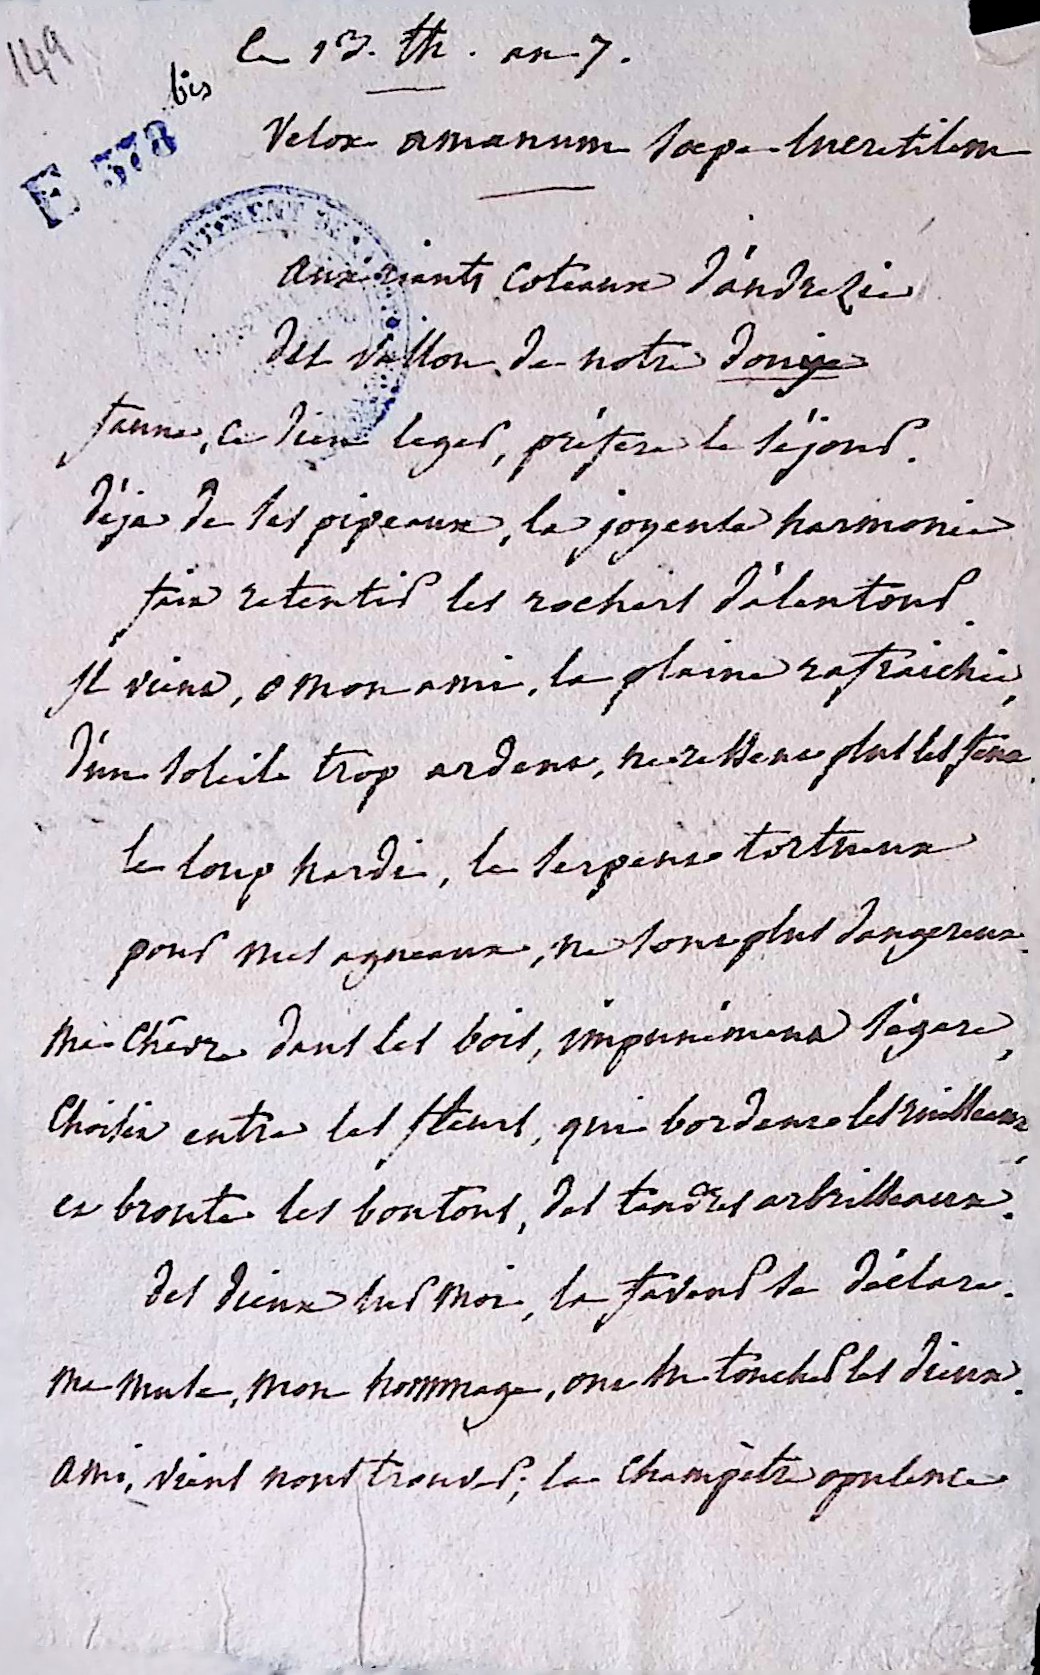 149
bis
E 378
Le 13. th. an 7.
Velox amœnum sœpe Lucretilem
aux riants coteaux d'andrezie
des vallon de notre
faune, ce dieu leger, préfere le séjour.
déja de ses pipeaux, la joyeuse harmonie
fait retentir les rochers d'alentour.
il vient, o mon ami, la plaine rafraichie,
d'un soleile trop ardent, ne ressent plus les feux.
le loup hardi, le serpent tortueux
pour mes agneaux, ne sont plus dangereux.
ma chêvre dans les bois, impunément s'égare,
choisit entre les fleurs, qui bordent les ruisseaux,
et broute les boutons, des tendres arbrisseaux.
des dieux sur moi, la faveur se déclare.
ma muse, mon hommage, ont su toucher les dieux.
ami, viens nous trouver; la champètre opulence